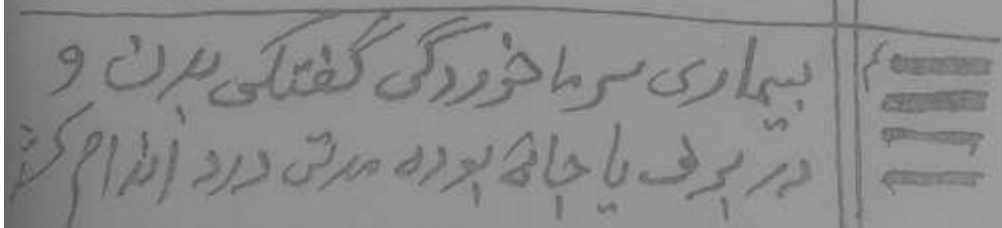 بیماری سرماخوردگی گفتگی بدن و
در برف یا چاله بوده مدتی درد اندام